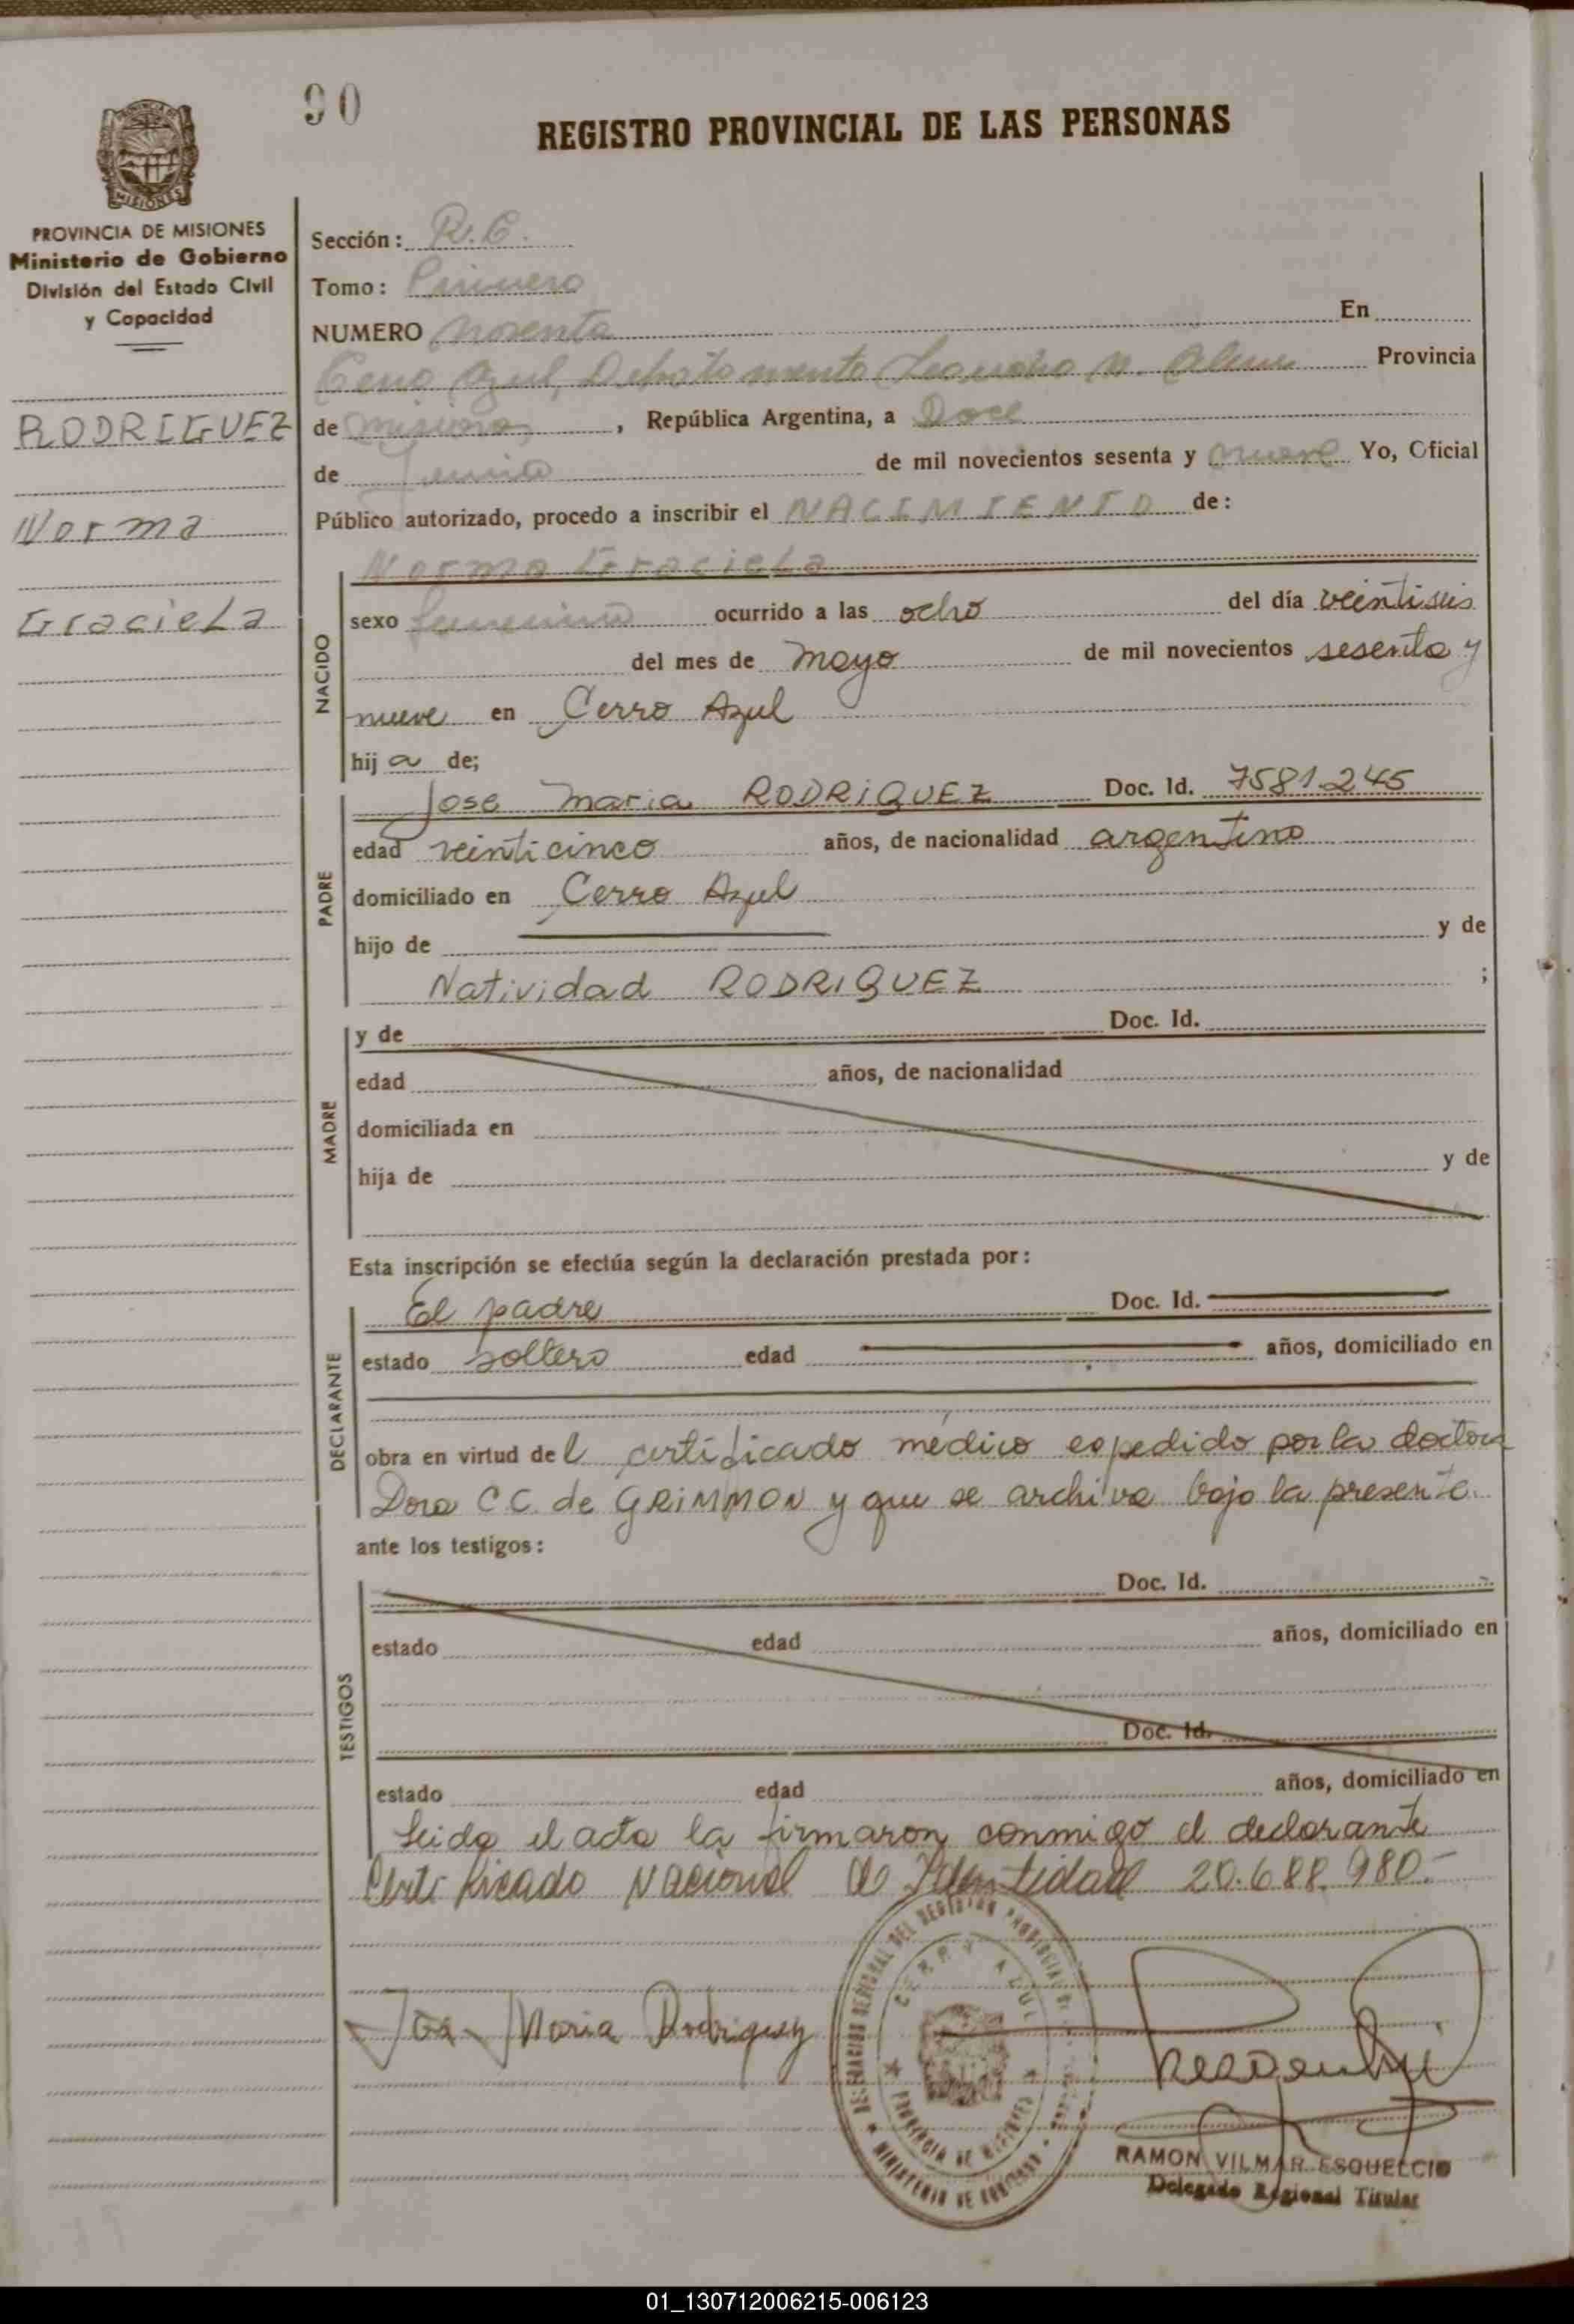 90
REGISTRO PROVINCIAL DE LAS PERSONAS
PROVINCIA DE MISIONES
Ministerio de Gobierno
División del Estado Civil
y Capacidad
RODRIGUEZ
Norma
Graciela
Sección: R.C.
Tomo: Primero
NUMERO noventa En
Cerro Azul, Departamento Leandro N. Alem Provincia
de Misiones, República Argentina, a Doce
de Junio de mil novecientos sesenta y nueve Yo, Oficial
Público autorizado, procedo a inscribir el NACIMIENTO de:
Norma Graciela
NACIDO
sexo femenino ocurrido a las ocho del día veintiseis
del mes de mayo de mil novecientos sesenta y
nueve en Cerro Azul
hij a de;
PADRE
Jose Maria RODRIGUEZ Doc. Id. 7581.245
edad veinticinco años, de nacionalidad argentino
domiciliado en Cerro Azul
hijo de y de
Natividad RODRIGUEZ ;
MADRE
y de Doc. Id.
edad años, de nacionalidad
domiciliada en
hija de y de
Esta inscripción se efectúa según la declaración prestada por:
DECLARANTE
El padre Doc. Id.
estado soltero edad años, domiciliado en
obra en virtud del certificado médico expedido por la doctora
Dora C.C. de GRIMMON y que se archiva bajo la presente.
ante los testigos:
TESTIGOS
Doc. Id.
estado edad años, domiciliado en
Doc. Id.
estado edad años, domiciliado en
Leida el acta la firmaron conmigo el declarante
Certificado Nacional de Identidad 20.688.980.-
José Maria Rodriguez
DELEGACION REGIONAL DEL REGISTRO PROVINCIAL DE
CERRO AZUL
PROVINCIA DE MISIONES
MINISTERIO DE GOBIERNO
RAMON VILMAR ESQUELCIO
Delegado Regional Titular
01_130712006215-006123